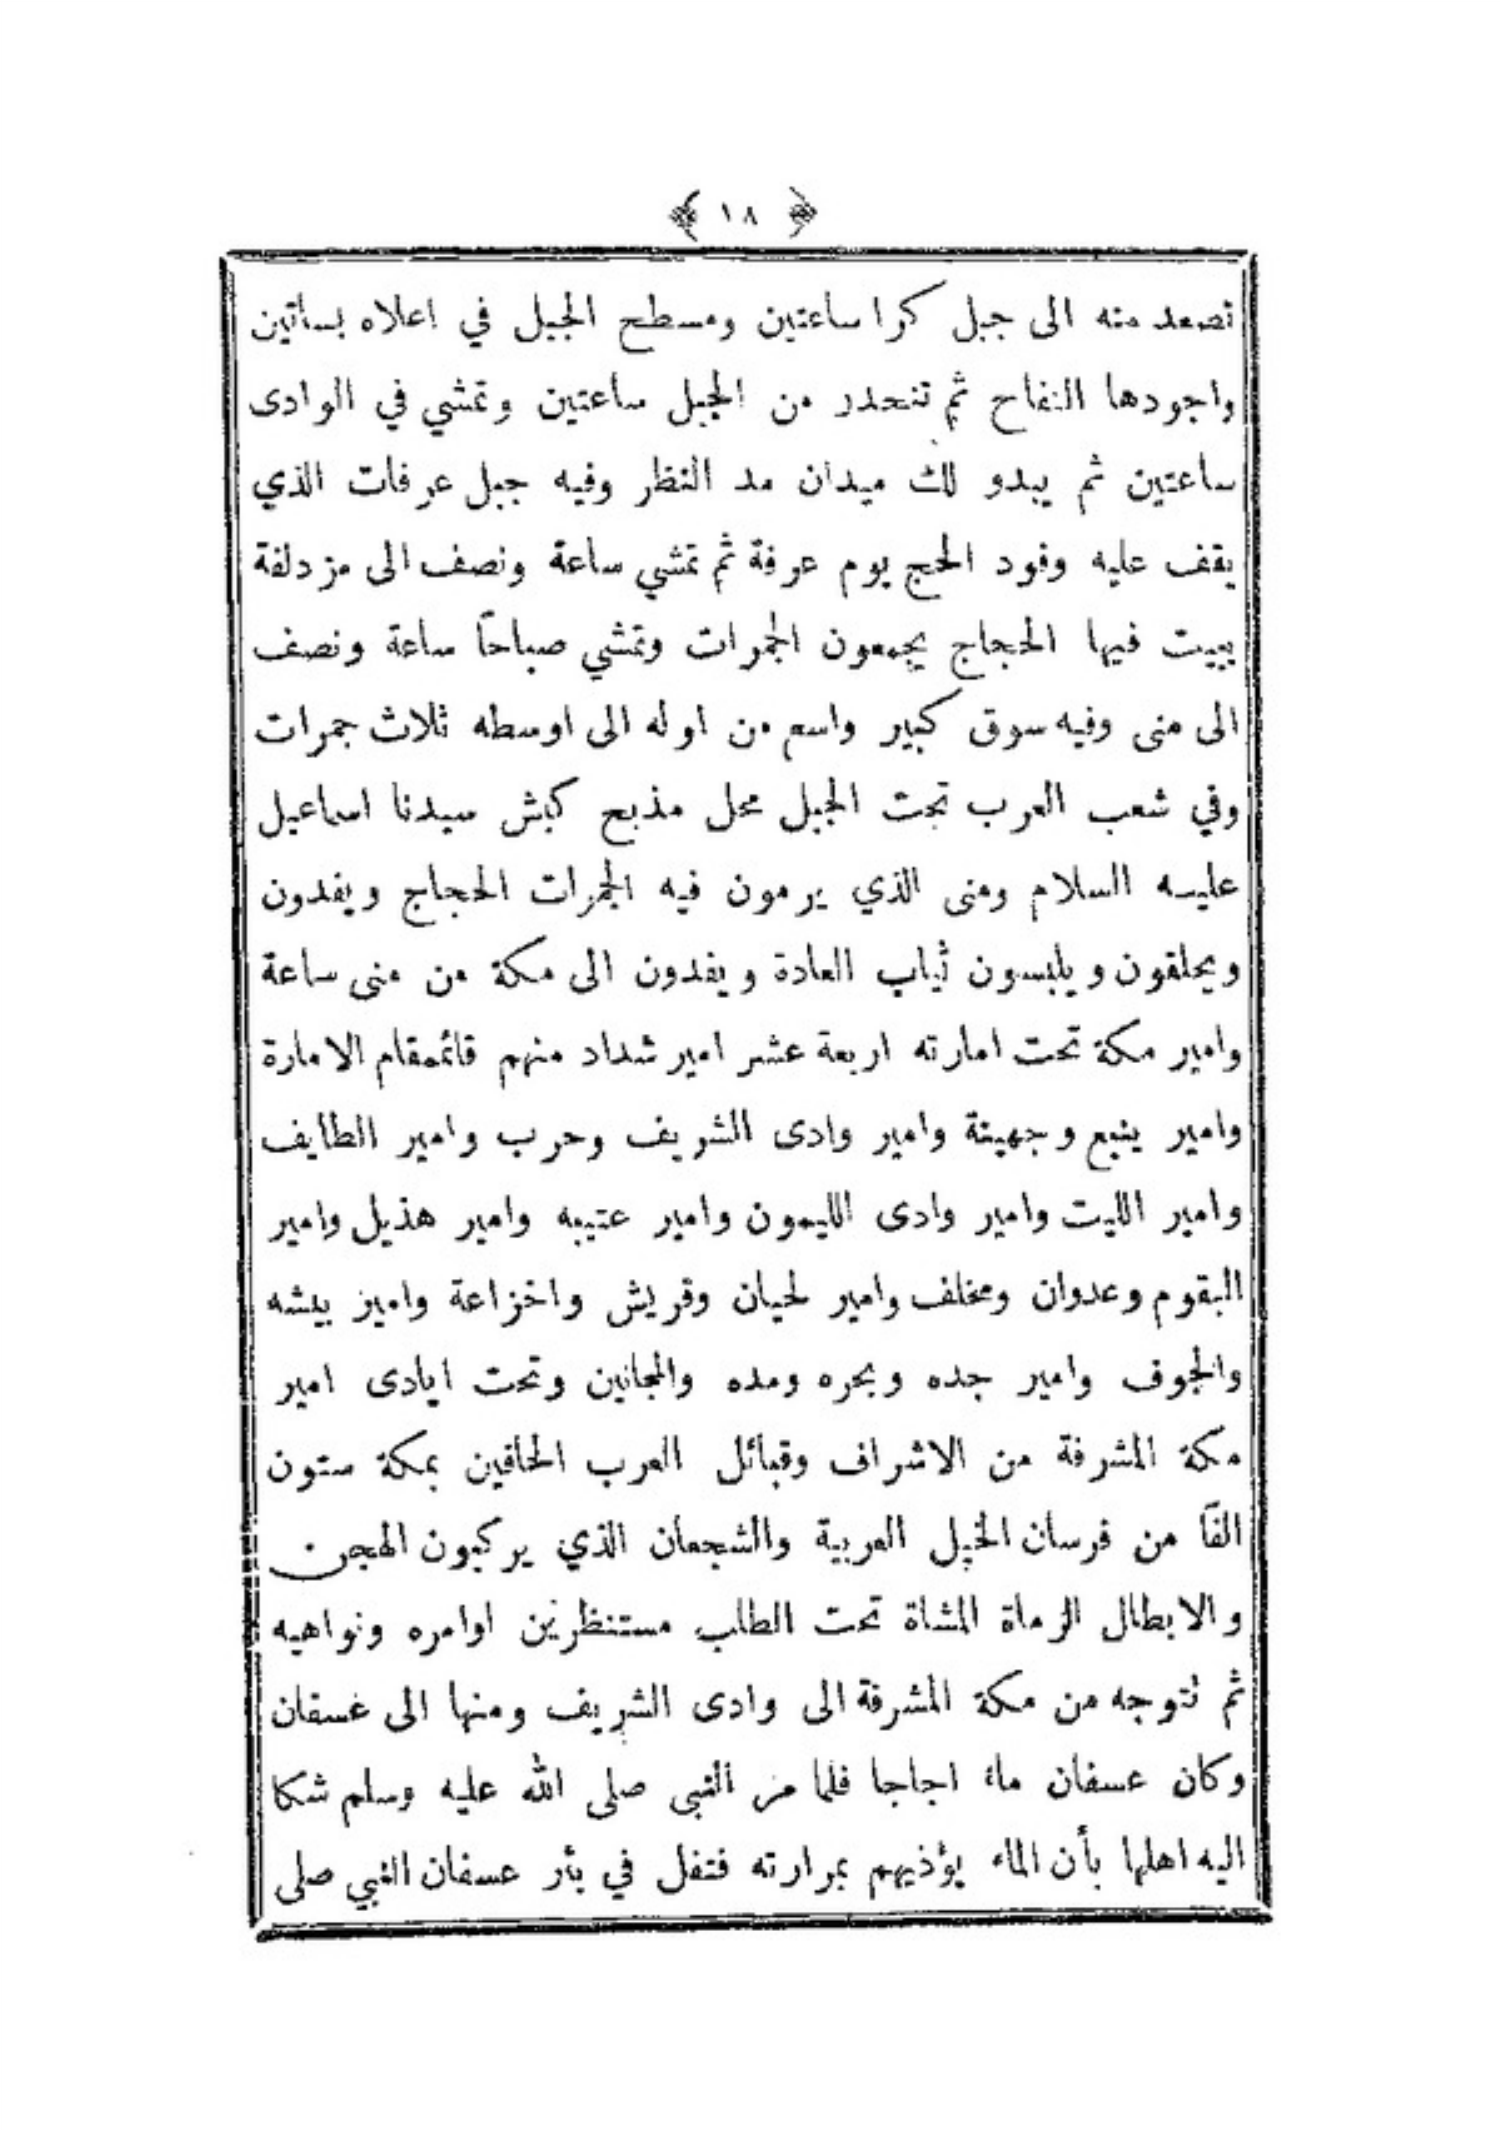 ﴿ ١٨ ﴾
تصعد منه الى جبل كرا ساعتين ومسطح الجبل في اعلاه بساتين
واجودها التفاح ثم تنحدر من الجبل ساعتين وتمشي في الوادى
ساعتين ثم يبدو لك ميدان مد النظر وفيه جبل عرفات الذي
يقف عليه وفود الحج يوم عرفة ثم تمشي ساعة ونصف الى مزدلفة
يبيت فيها الحجاج يجمعون الجمرات وتمشي صباحًا ساعة ونصف
الى منى وفيه سوق كبير واسع من اوله الى اوسطه ثلاث جمرات
وفي شعب العرب تحت الجبل محل مذبح كبش سيدنا اسماعيل
عليه السلام ومنى الذي يرمون فيه الجمرات الحجاج ويفدون
ويحلقون ويلبسون ثياب العادة ويفدون الى مكة من منى ساعة
وامير مكة تحت امارته اربعة عشر امير شداد منهم قائمقام الامارة
وامير ينبع وجهينة وامير وادى الشريف وحرب وامير الطايف
وامير الليت وامير وادى الليمون وامير عتيبه وامير هذيل وامير
البقوم وعدوان ومخلف وامير لحيان وقريش واخزاعة وامير بيشه
والجوف وامير جده وبحره ومده والمجانين وتحت ايادى امير
مكة المشرفة من الاشراف وقبائل العرب الحافين بمكة ستون
الفًا من فرسان الخيل العربية والشجعان الذي يركبون الهجن
والابطال الرماة المشاة تحت الطلب مستنظرين اوامره ونواهيه
ثم نتوجه من مكة المشرفة الى وادى الشريف ومنها الى غسقان
وكان عسفان ماء اجاجا فلما مر النبى صلى الله عليه وسلم شكا
اليه اهلها بأن الماء يؤذيهم بمرارته فتفل في بئر عسفان النبي صلى